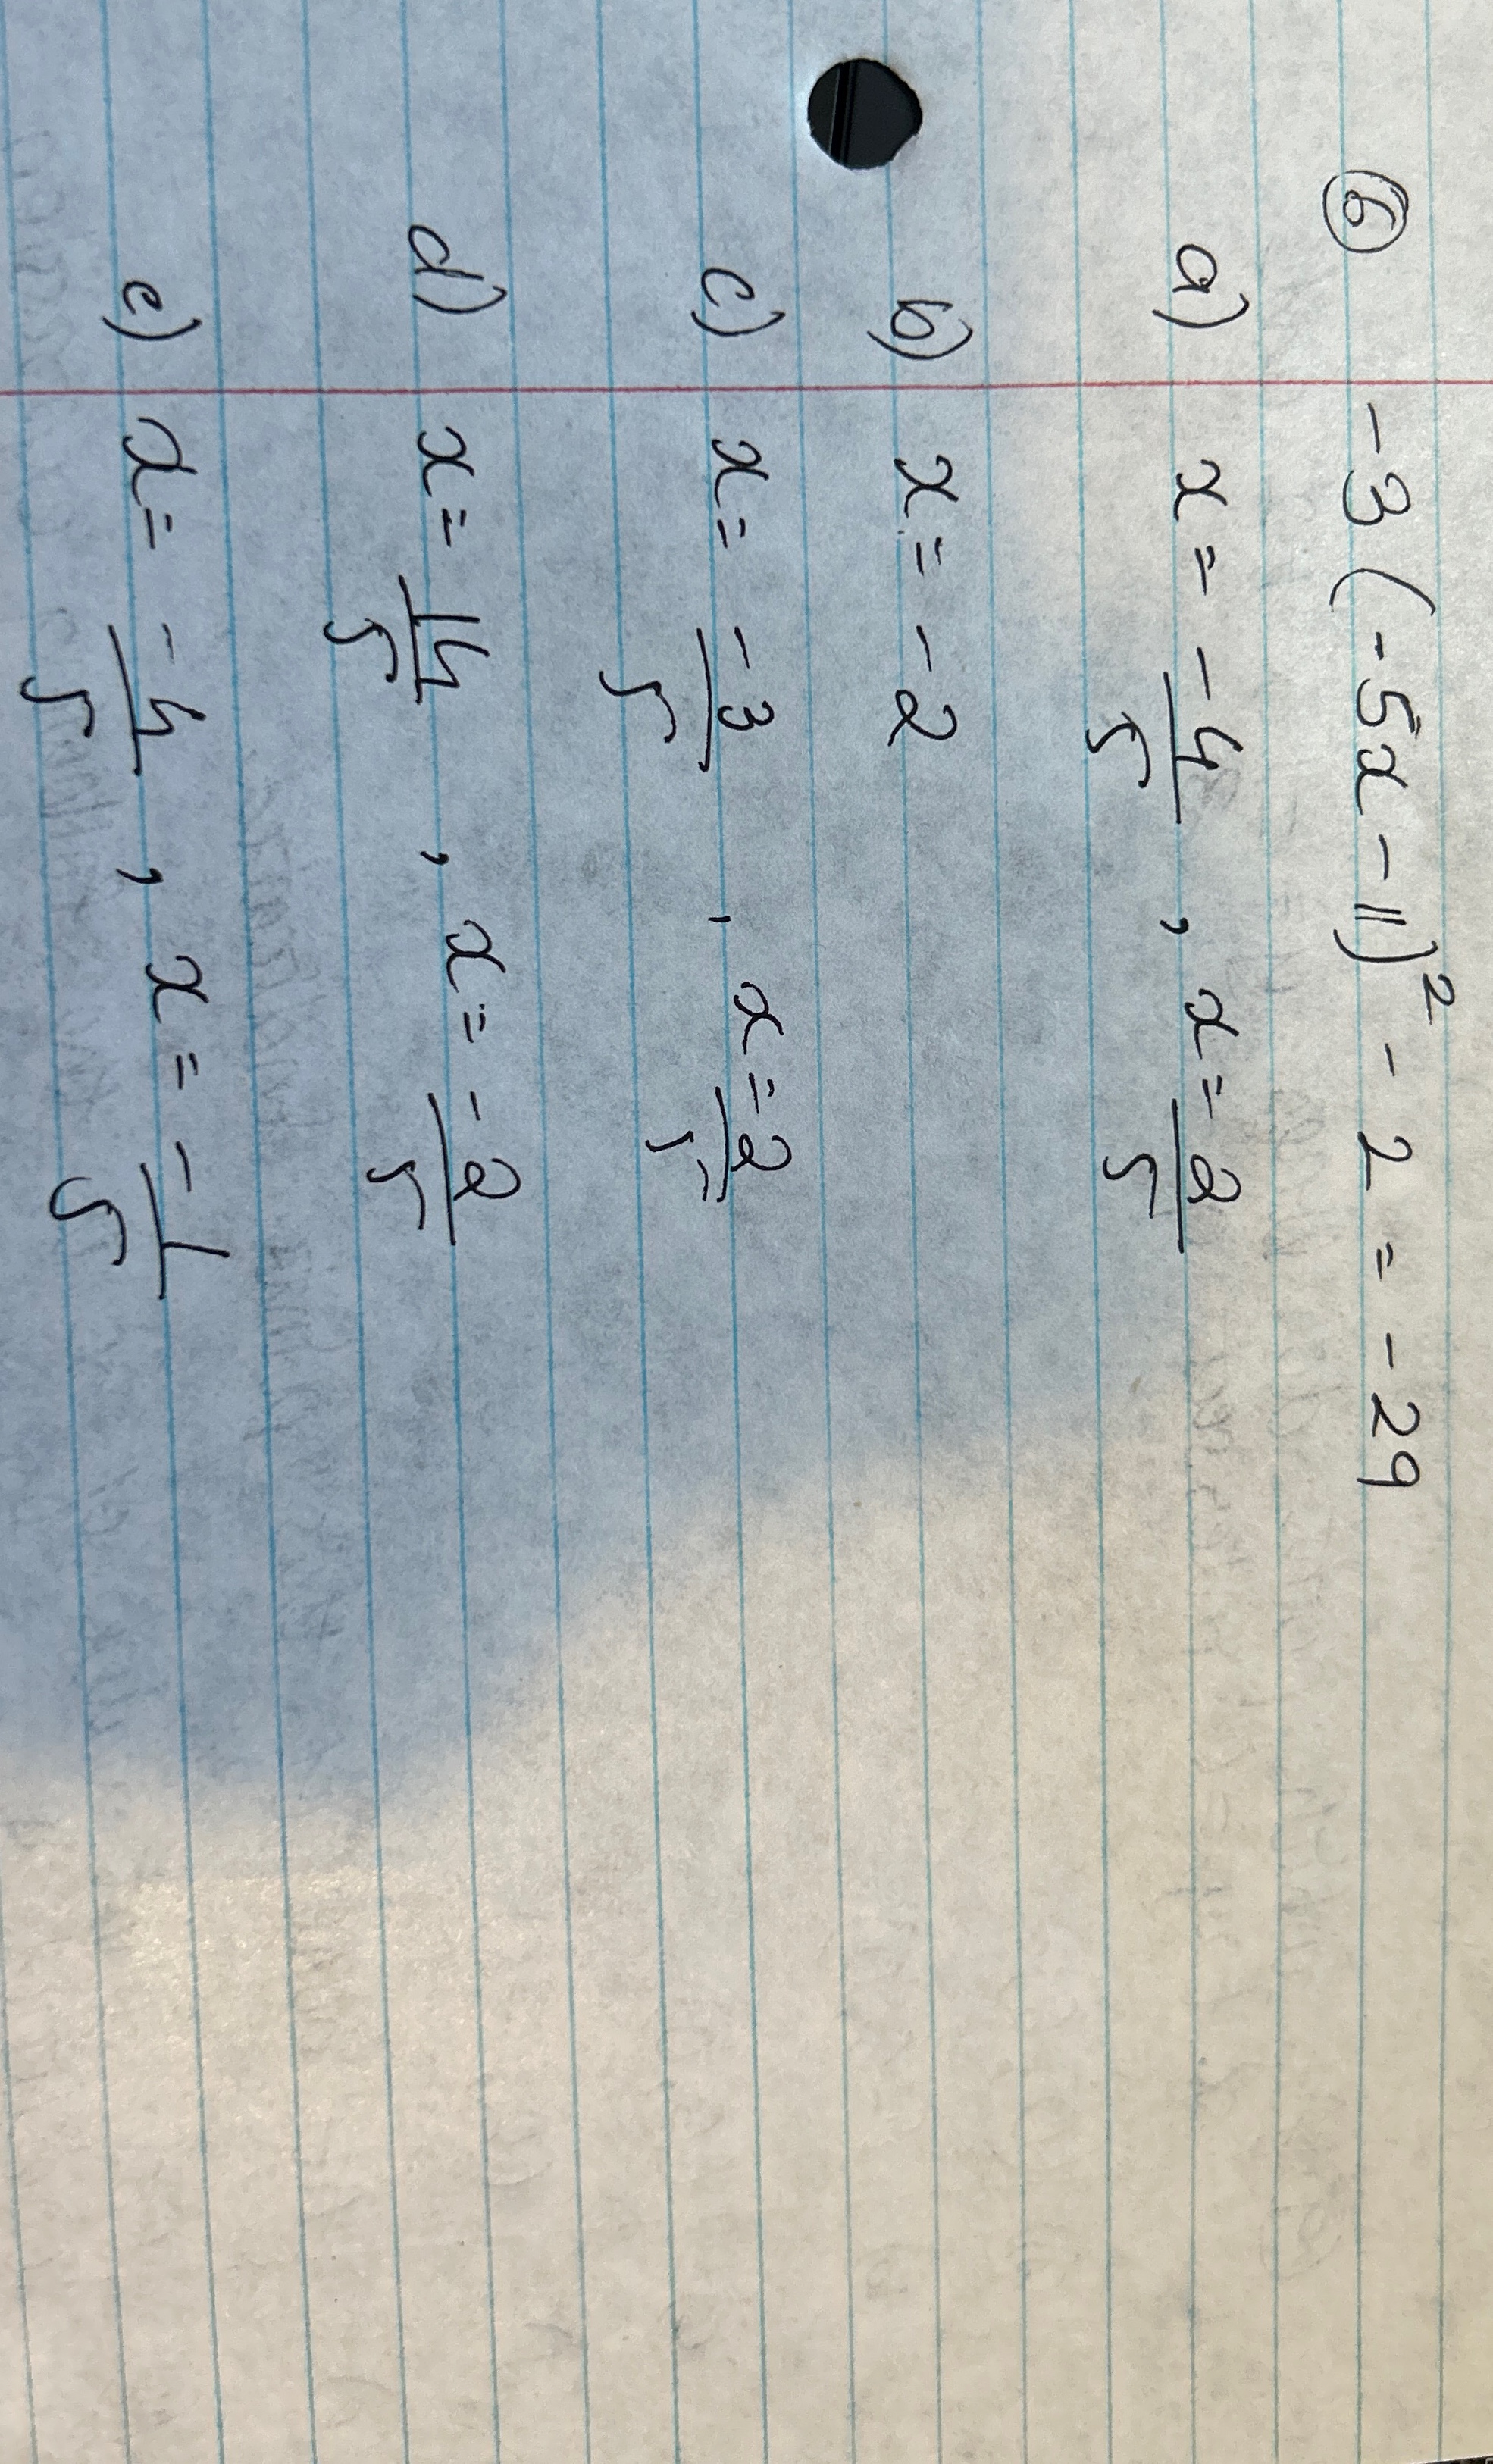 6 -3(-5x-11)² - 2 = -29
a) x = -4/5, x = 2/5
b) x = -2
c) x = -3/5, x = 2/5
d) x = 14/5, x = -2/5
e) x = -4/5, x = -1/5